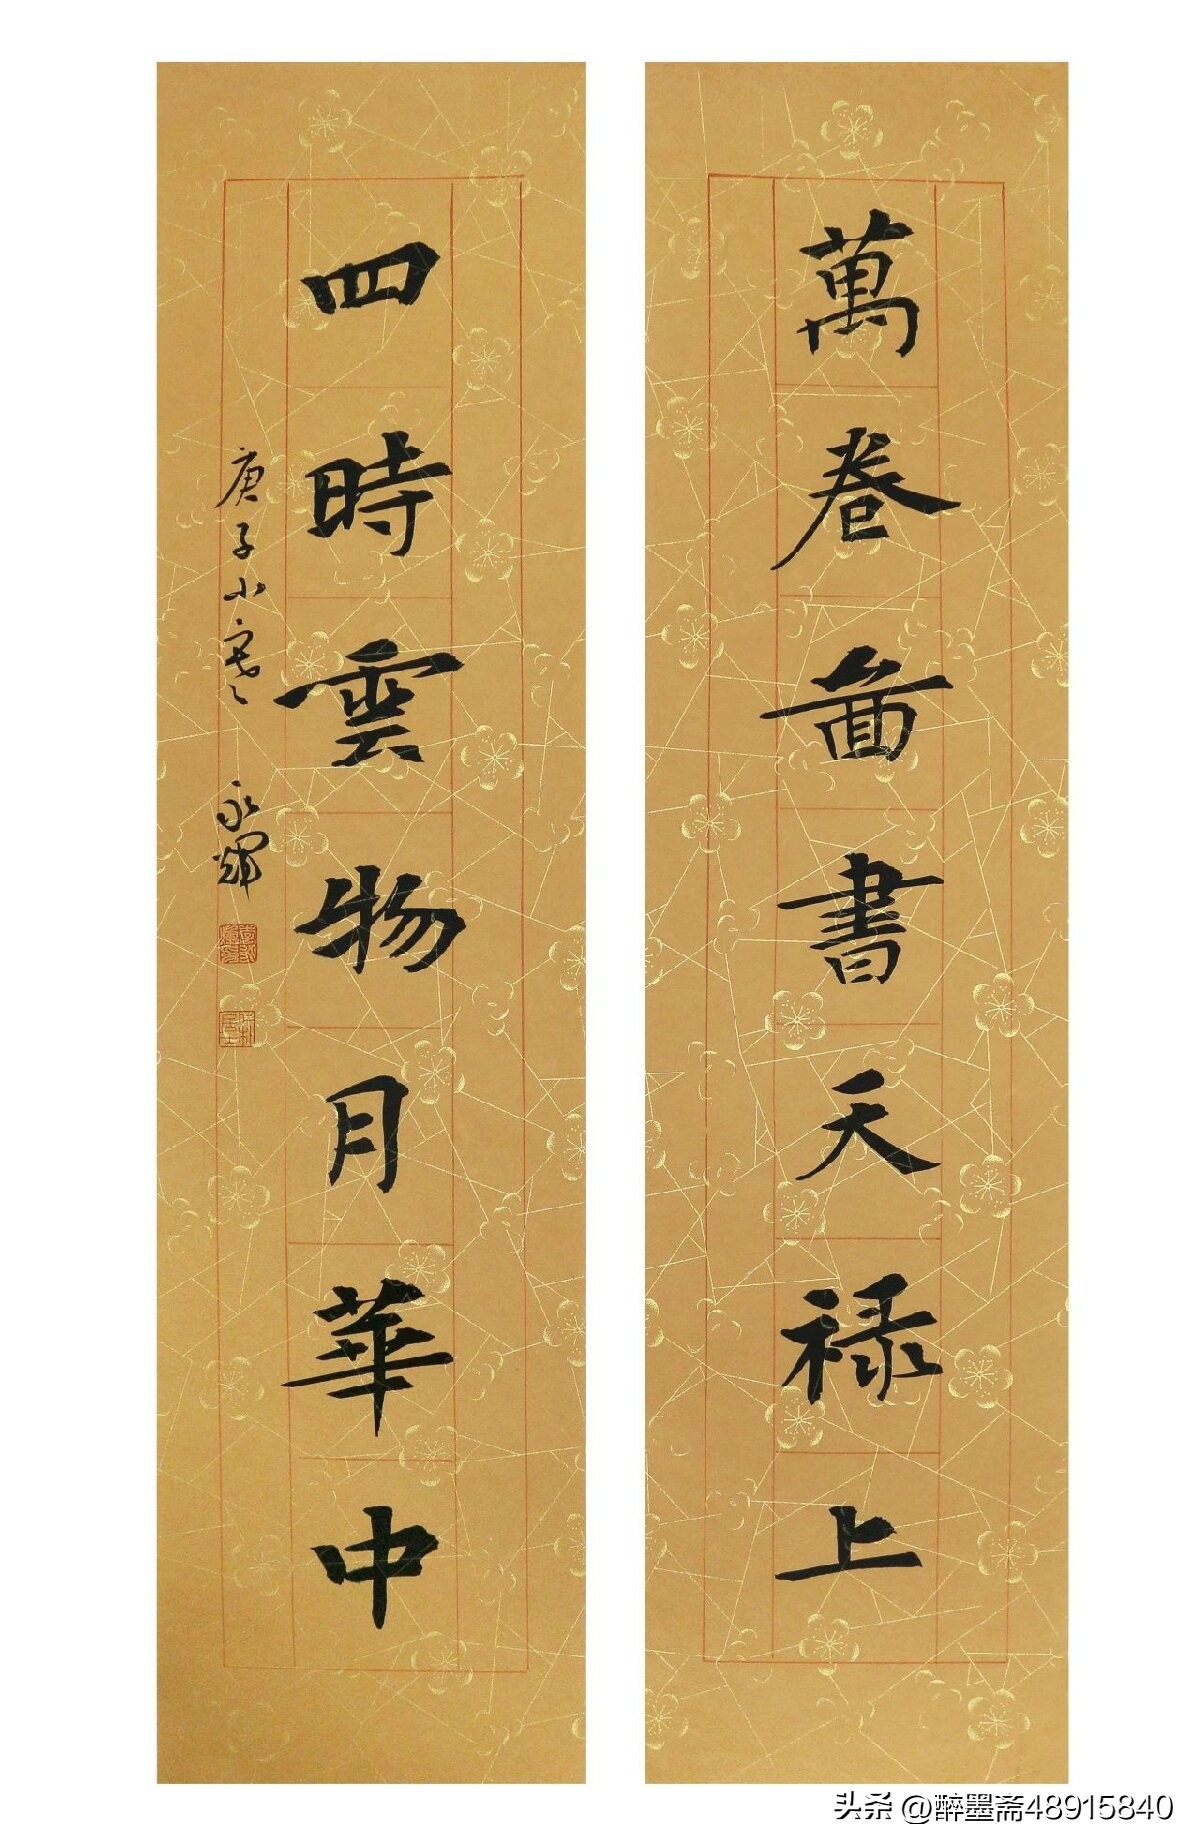 萬卷圖書天禄上
四時雲物月華中
庚子小寒
永輝
头条 @醉墨斋48915840